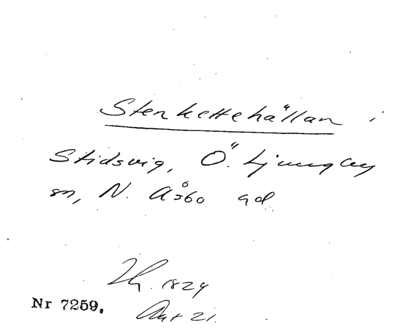 Stenkettehällan i
Stidsvig, Ö. Ljungby
sn, N. Åsbo hd.
1824
Nr 7259.
21.